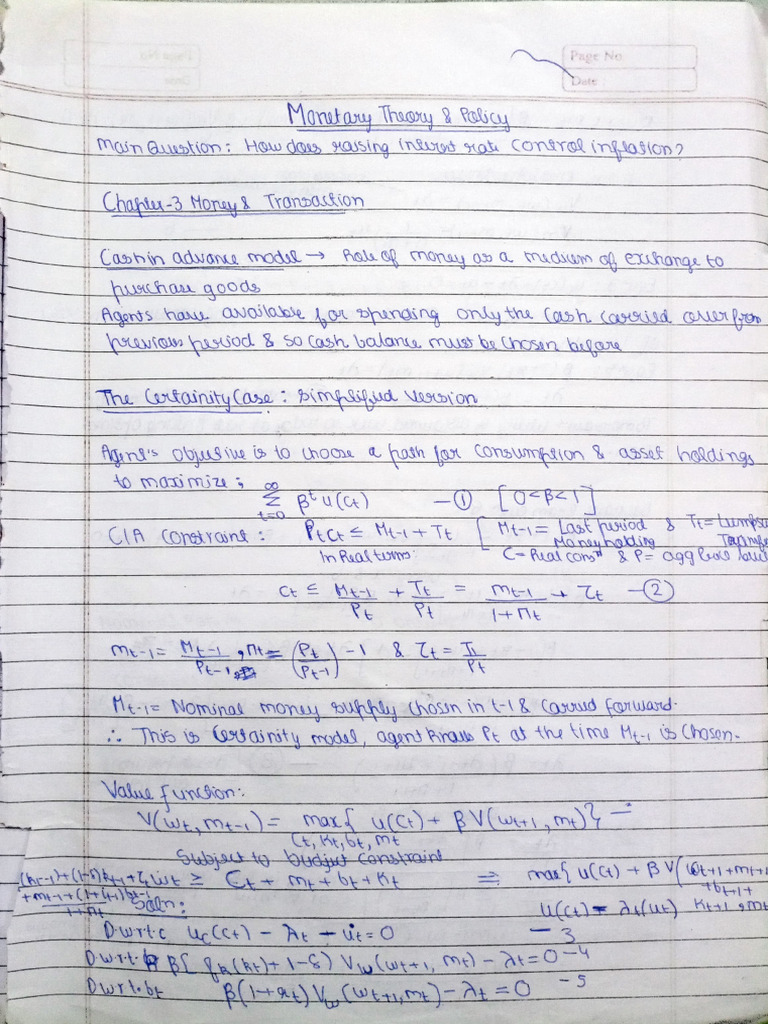 Page No
Date
Monetary Theory & Policy
Main Question: How does raising interest rate control inflation?
Chapter-3 Money & Transaction
Cash in advance model → Role of money as a medium of exchange to
purchase goods
Agents have available for spending only the cash carried over from
previous period & so cash balance must be chosen before
The Certainity Case: Simplified Version
Agent's objective is to choose a path for consumption & asset holdings
to maximize;
∞ Σ t=0 β^t u(Ct) — ① [0<β<1]
CIA Constraint: PtCt ≤ Mt-1 + Tt [Mt-1 = Last period & Tt = Lumpsum
Money holding
In Real terms: C = Real cons & P = agg
Ct ≤ Mt-1/Pt + Tt/Pt = mt-1/1+Πt + τt — ②
mt-1 = Mt-1/Pt-1, Πt = (Pt/Pt-1) - 1 & τt = Tt/Pt
Mt-1 = Nominal money supply chosen in t-1 & carried forward.
∴ This is Certainity model, agent knows Pt at the time Mt-1 is chosen.
Value function:
V(ωt, mt-1) = max{ u(Ct) + βV(ωt+1, mt)}
Ct, Kt, bt, mt
Subject to budget constraint
ωt ≥ Ct + mt + bt + Kt ⇒ max{ u(Ct) + βV(ωt+1
Soln:
D.w.r.t c uc(Ct) - λt - μt = 0 — 3
D w.r.t β[ (Kt) + 1-δ) Vω(ωt+1, mt) - λt = 0 -4
D w.r.t. bt β(1+rt) Vω(ωt+1, mt) - λt = 0 -5